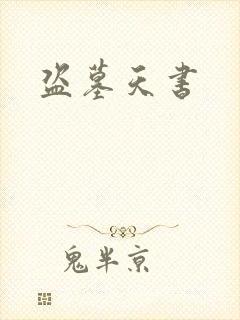 盗墓天书
鬼半京